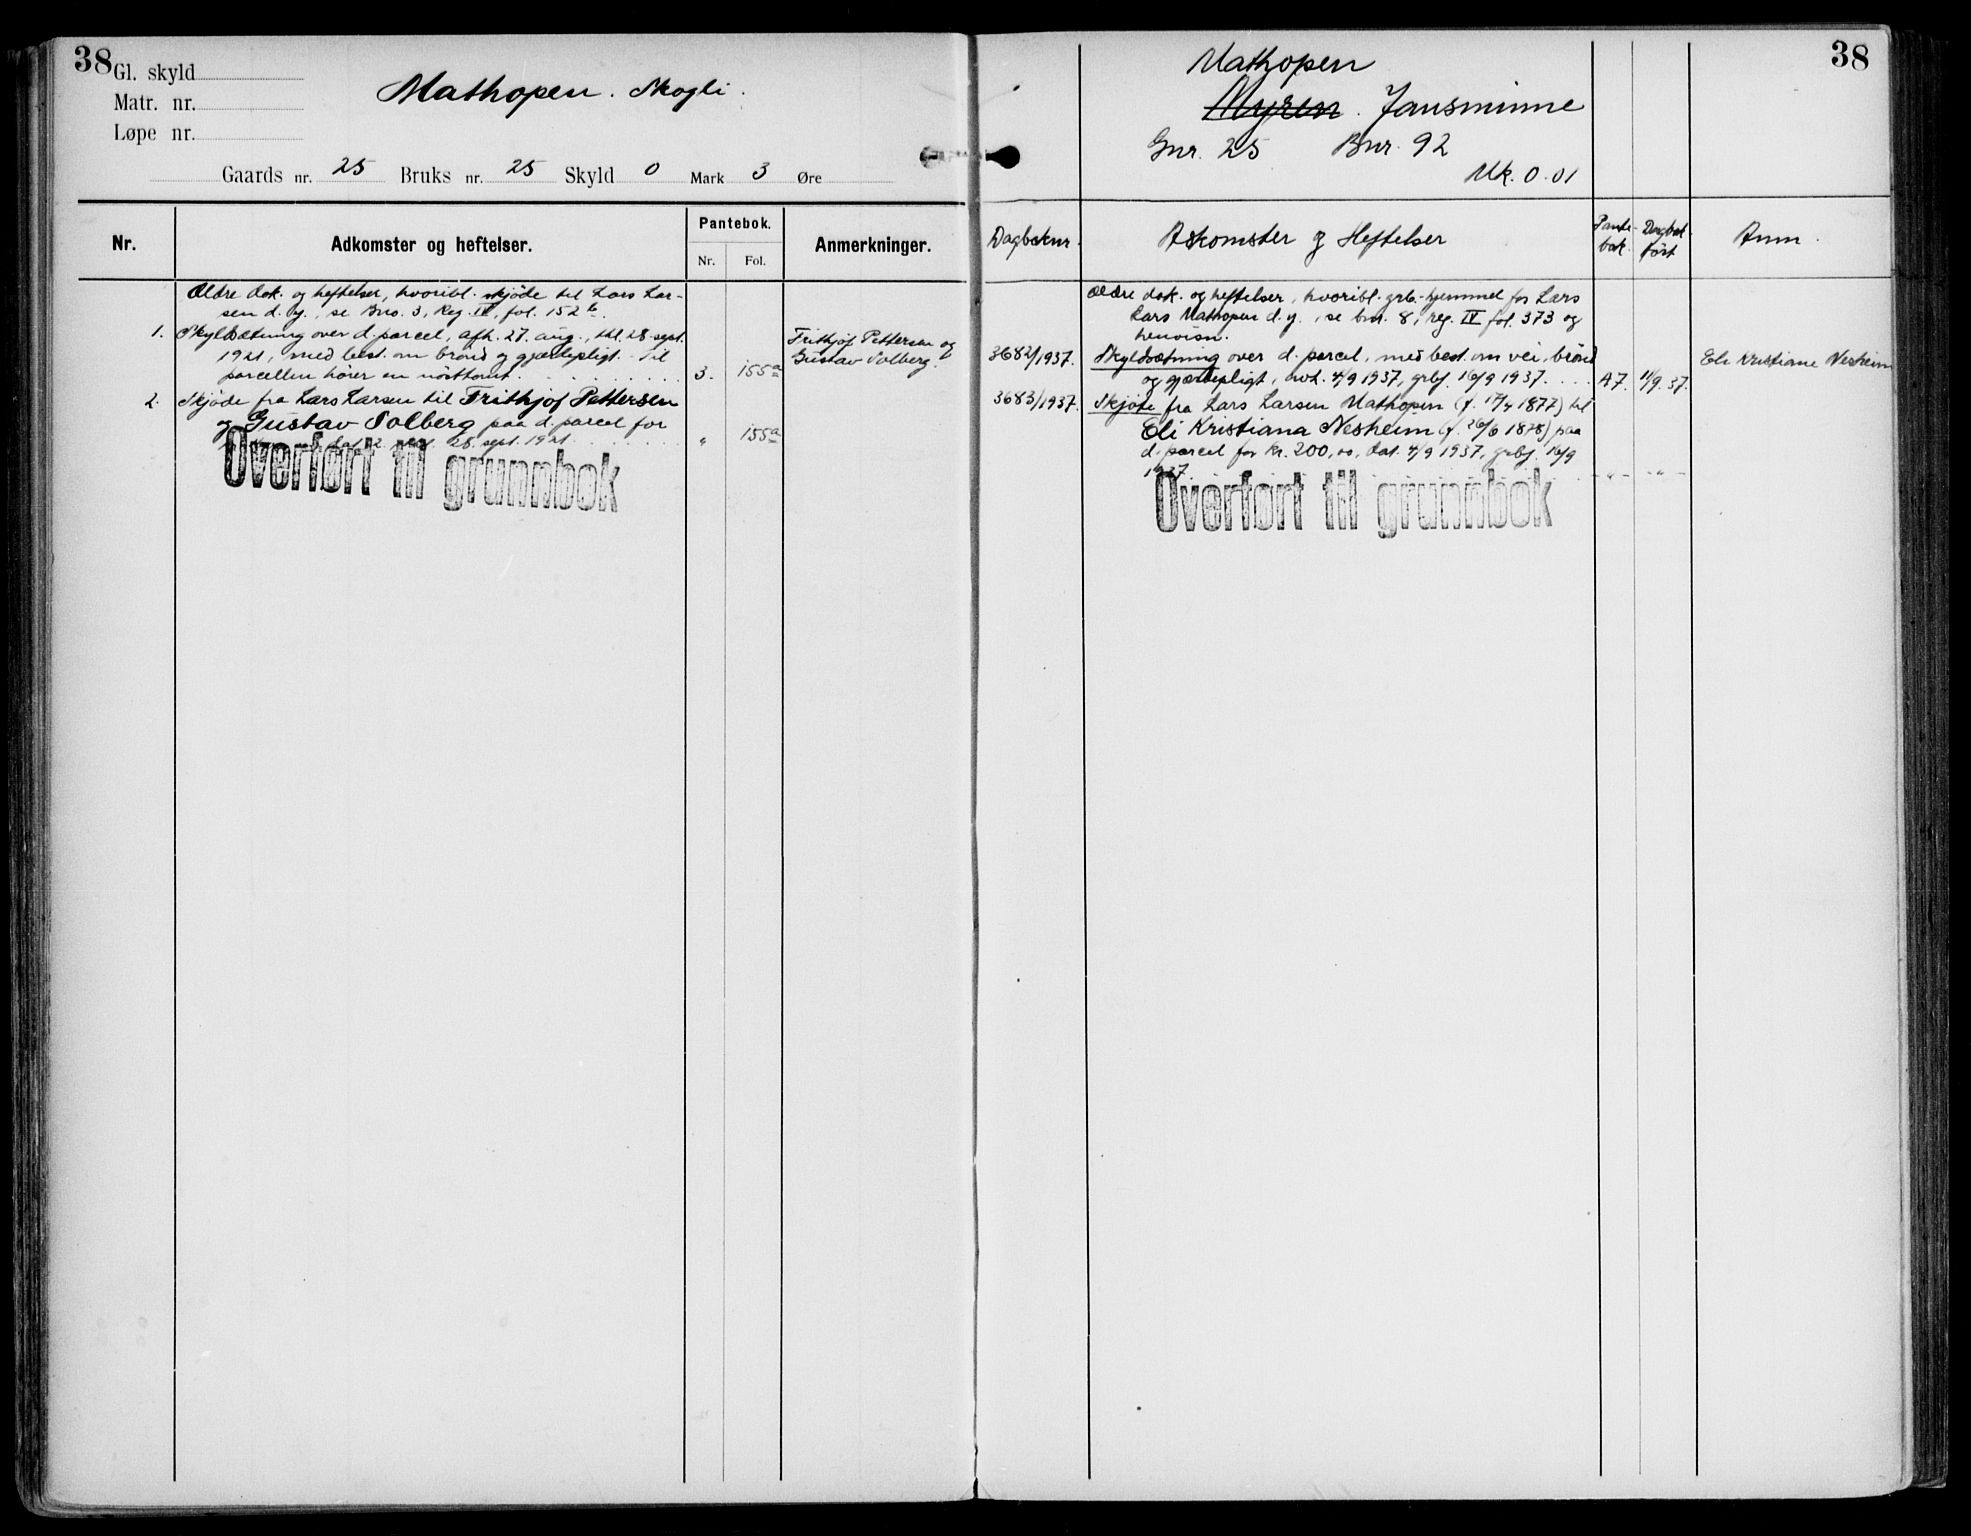 38
Gl. skyld
Matr. nr.
Løpe nr.
Mathopen. Skogli.
Gaards nr. 25 Bruks nr. 25 Skyld 0 Mark 3 Øre
Nr.
Adkomster og heftelser.
Pantebok.
Nr. Fol.
Anmerkninger.
Ældre dok. og heftelser, hvoribl. skjøde til Lars Lar-
sen d. y., se Bno. 3, Reg. IV, fol. 152 b.
1. Skyldsætning over d. parcel, afh. 27. aug., thl. 28. sept.
1921, med best. om brønd og gjærdepligt. Til
parcellen hører en nøsttomt. 3. 155a
Frithjof Pettersen og
Gustav Solberg.
2. Skjøde fra Lars Larsen til Frithjof Pettersen
og Gustav Solberg paa d. parcel for
28. sept. 1921. " 155a
Overført til grunnbok
38
Mathopen
Myren. Jansminne
Gnr. 25 Bnr. 92
Mk. 0.01
Dagboknr.
Adkomster og Heftelser
Pante-
bok.
Dagbok-
ført
Anm.
Ældre dok. og heftelser, hvoribl. grb.-hjemmel for Lars
Lars Mathopen d. y., se bnr. 8, reg. IV fol. 373 og
henvisn.
3682/1937. Skyldsætning over d. parcel, med best. om vei, brønd
og gjærdepligt, avh. 4/9 1937, grbf. 16/9 1937. A7. 11/9.37.
Eli Kristiane Nesheim
3683/1937. Skjøte fra Lars Larsen Mathopen (f. 17/4 1877) til
Eli Kristiana Nesheim (f. 26/6 1878) paa
d. parcel for kr. 200,00, dat. 4/9 1937, grbf. 16/9
1937. - " - - " -
Overført til grunnbok